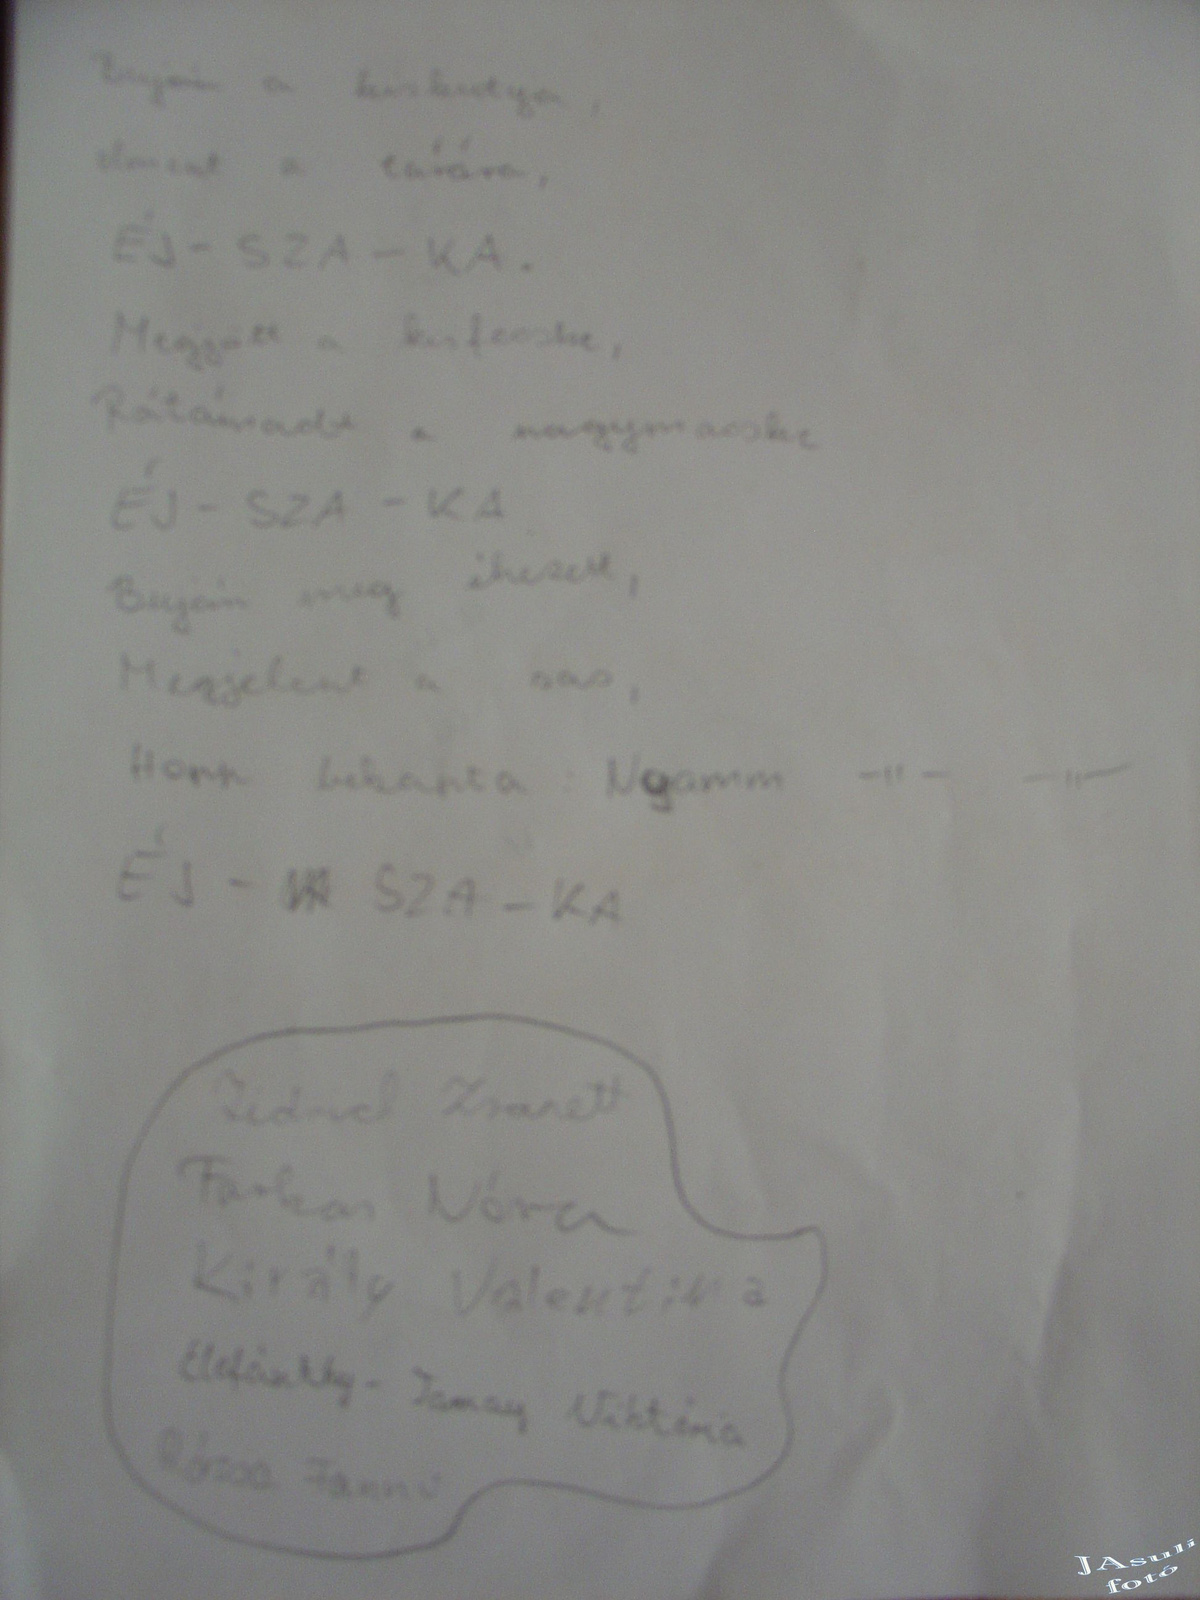 Buján a kiskutya,
elment a
ÉJ - SZA - KA.
Megjött a kisfecske,
Rátámadt a nagymacska
ÉJ - SZA - KA
Buján meg éhezett,
Megjelent a sas,
Hopp bekapta : Ngamm -"- -"-
ÉJ - SZA - KA
Zsanett
Farkas Nóra
Király Valentina
Elefánthy - Tamay Viktória
Rózsa Fanni
JAsuli
fotó